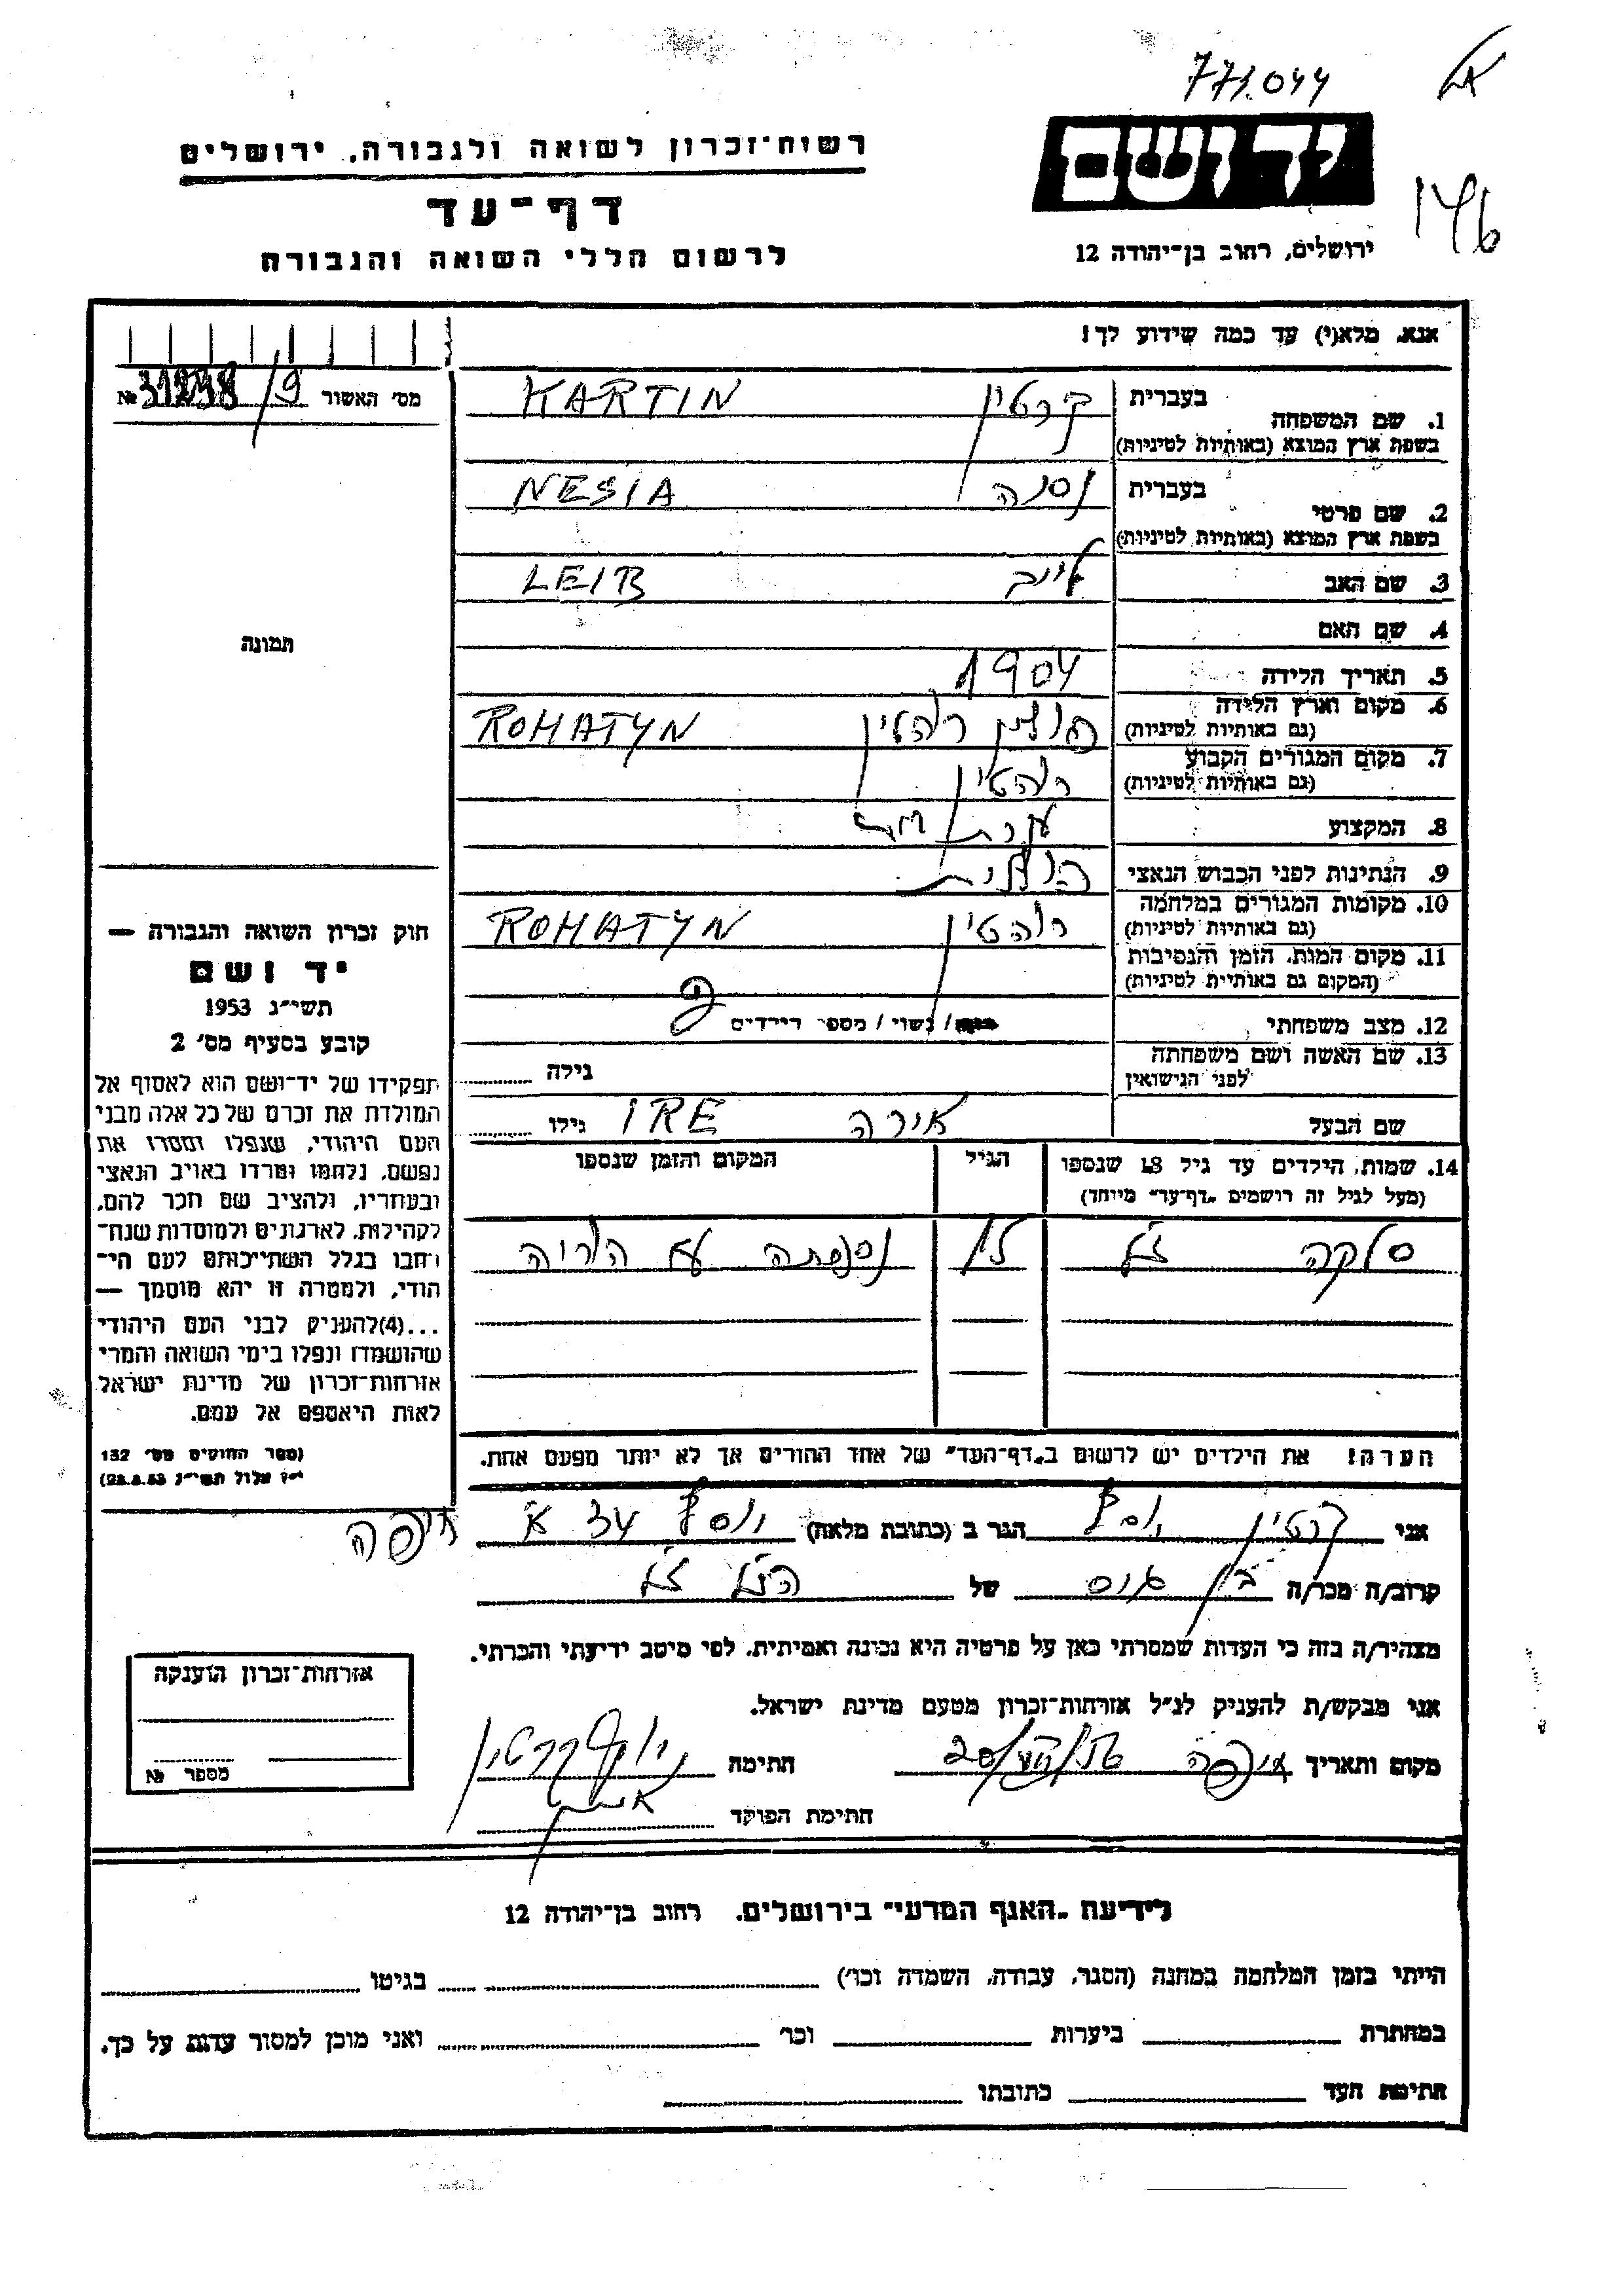 771.044
146
יד ושם
ירושלים, רחוב בן־יהודה 12
רשות־זכרון לשואה ולגבורה, ירושלים
דף־עד
לרשום חללי השואה והגבורה
אנא, מלא(י) עד כמה שידוע לך!
מס׳ האשור 31238/9 №
1. שם המשפחה בעברית קרטין KARTIN
בשפת ארץ המוצא (באותיות לטיניות)
2. שם פרטי בעברית נסיה NESIA
בשפת ארץ המוצא (באותיות לטיניות)
3. שם האב לייב LEIB
4. שם האם
5. תאריך הלידה 1904
6. מקום וארץ הלידה פולין רוהטין ROHATYN
(גם באותיות לטיניות)
7. מקום המגורים הקבוע רוהטין
(גם באותיות לטיניות)
8. המקצוע עקרת בית
9. הנתינות לפני הכבוש הנאצי פולנית
10. מקומות המגורים במלחמה רוהטין ROHATYN
(גם באותיות לטיניות)
11. מקום המות, הזמן והנסיבות
(המקום גם באותיות לטיניות)
12. מצב משפחתי רווק/ נשוי/ מספר הילדים 1
13. שם האשה ושם משפחתה גילה
לפני הנישואין
שם הבעל אירה IRE גילו
14. שמות, הילדים עד גיל 18 שנספו הגיל המקום והזמן שנספו
(מעל לגיל זה רושמים „דף־עד״ מיוחד)
סלקה נספתה עם הוריה
הערה! את הילדים יש לרשום ב„דף־העד״ של אחד ההורים אך לא יותר מפעם אחת.
תמונה
חוק זכרון השואה והגבורה —
יד ושם
תשי״ג 1953
קובע בסעיף מס׳ 2
תפקידו של יד־ושם הוא לאסוף אל
המולדת את זכרם של כל אלה מבני
העם היהודי, שנפלו ומסרו את
נפשם, נלחמו ומרדו באויב הנאצי
ובעוזריו, ולהציב שם וזכר להם,
לקהילות, לארגונים ולמוסדות שנח־
רבו בגלל השתייכותם לעם הי־
הודי, ולמטרה זו יהא מוסמך —
...(4)להעניק לבני העם היהודי
שהושמדו ונפלו בימי השואה והמרי
אזרחות־זכרון של מדינת ישראל
לאות היאספם אל עמם.
(ספר החוקים מס׳ 132
י״ז אלול תשי״ג 28.8.53)
אני קרטין יוסף הגר ב (כתובת מלאה) יוסף 34 א׳ חיפה
קרוב/ה מכר/ה בן דוד של הנ״ל ז״ל
מצהיר/ה בזה כי העדות שמסרתי כאן על פרטיה היא נכונה ואמיתית, לפי מיטב ידיעתי והכרתי.
אני מבקש/ת להעניק לנ״ל אזרחות־זכרון מטעם מדינת ישראל.
מקום ותאריך חיפה חתימה יוסף קרטין
חתימת הפוקד
אזרחות־זכרון הוענקה
מספר №
לידיעת „האגף המדעי״ בירושלים, רחוב בן־יהודה 12
הייתי בזמן המלחמה במחנה (הסגר, עבודה, השמדה וכו׳) בגיטו
במחתרת ביערות וכו׳ ואני מוכן למסור עדות על כך.
חתימת העד כתובתו